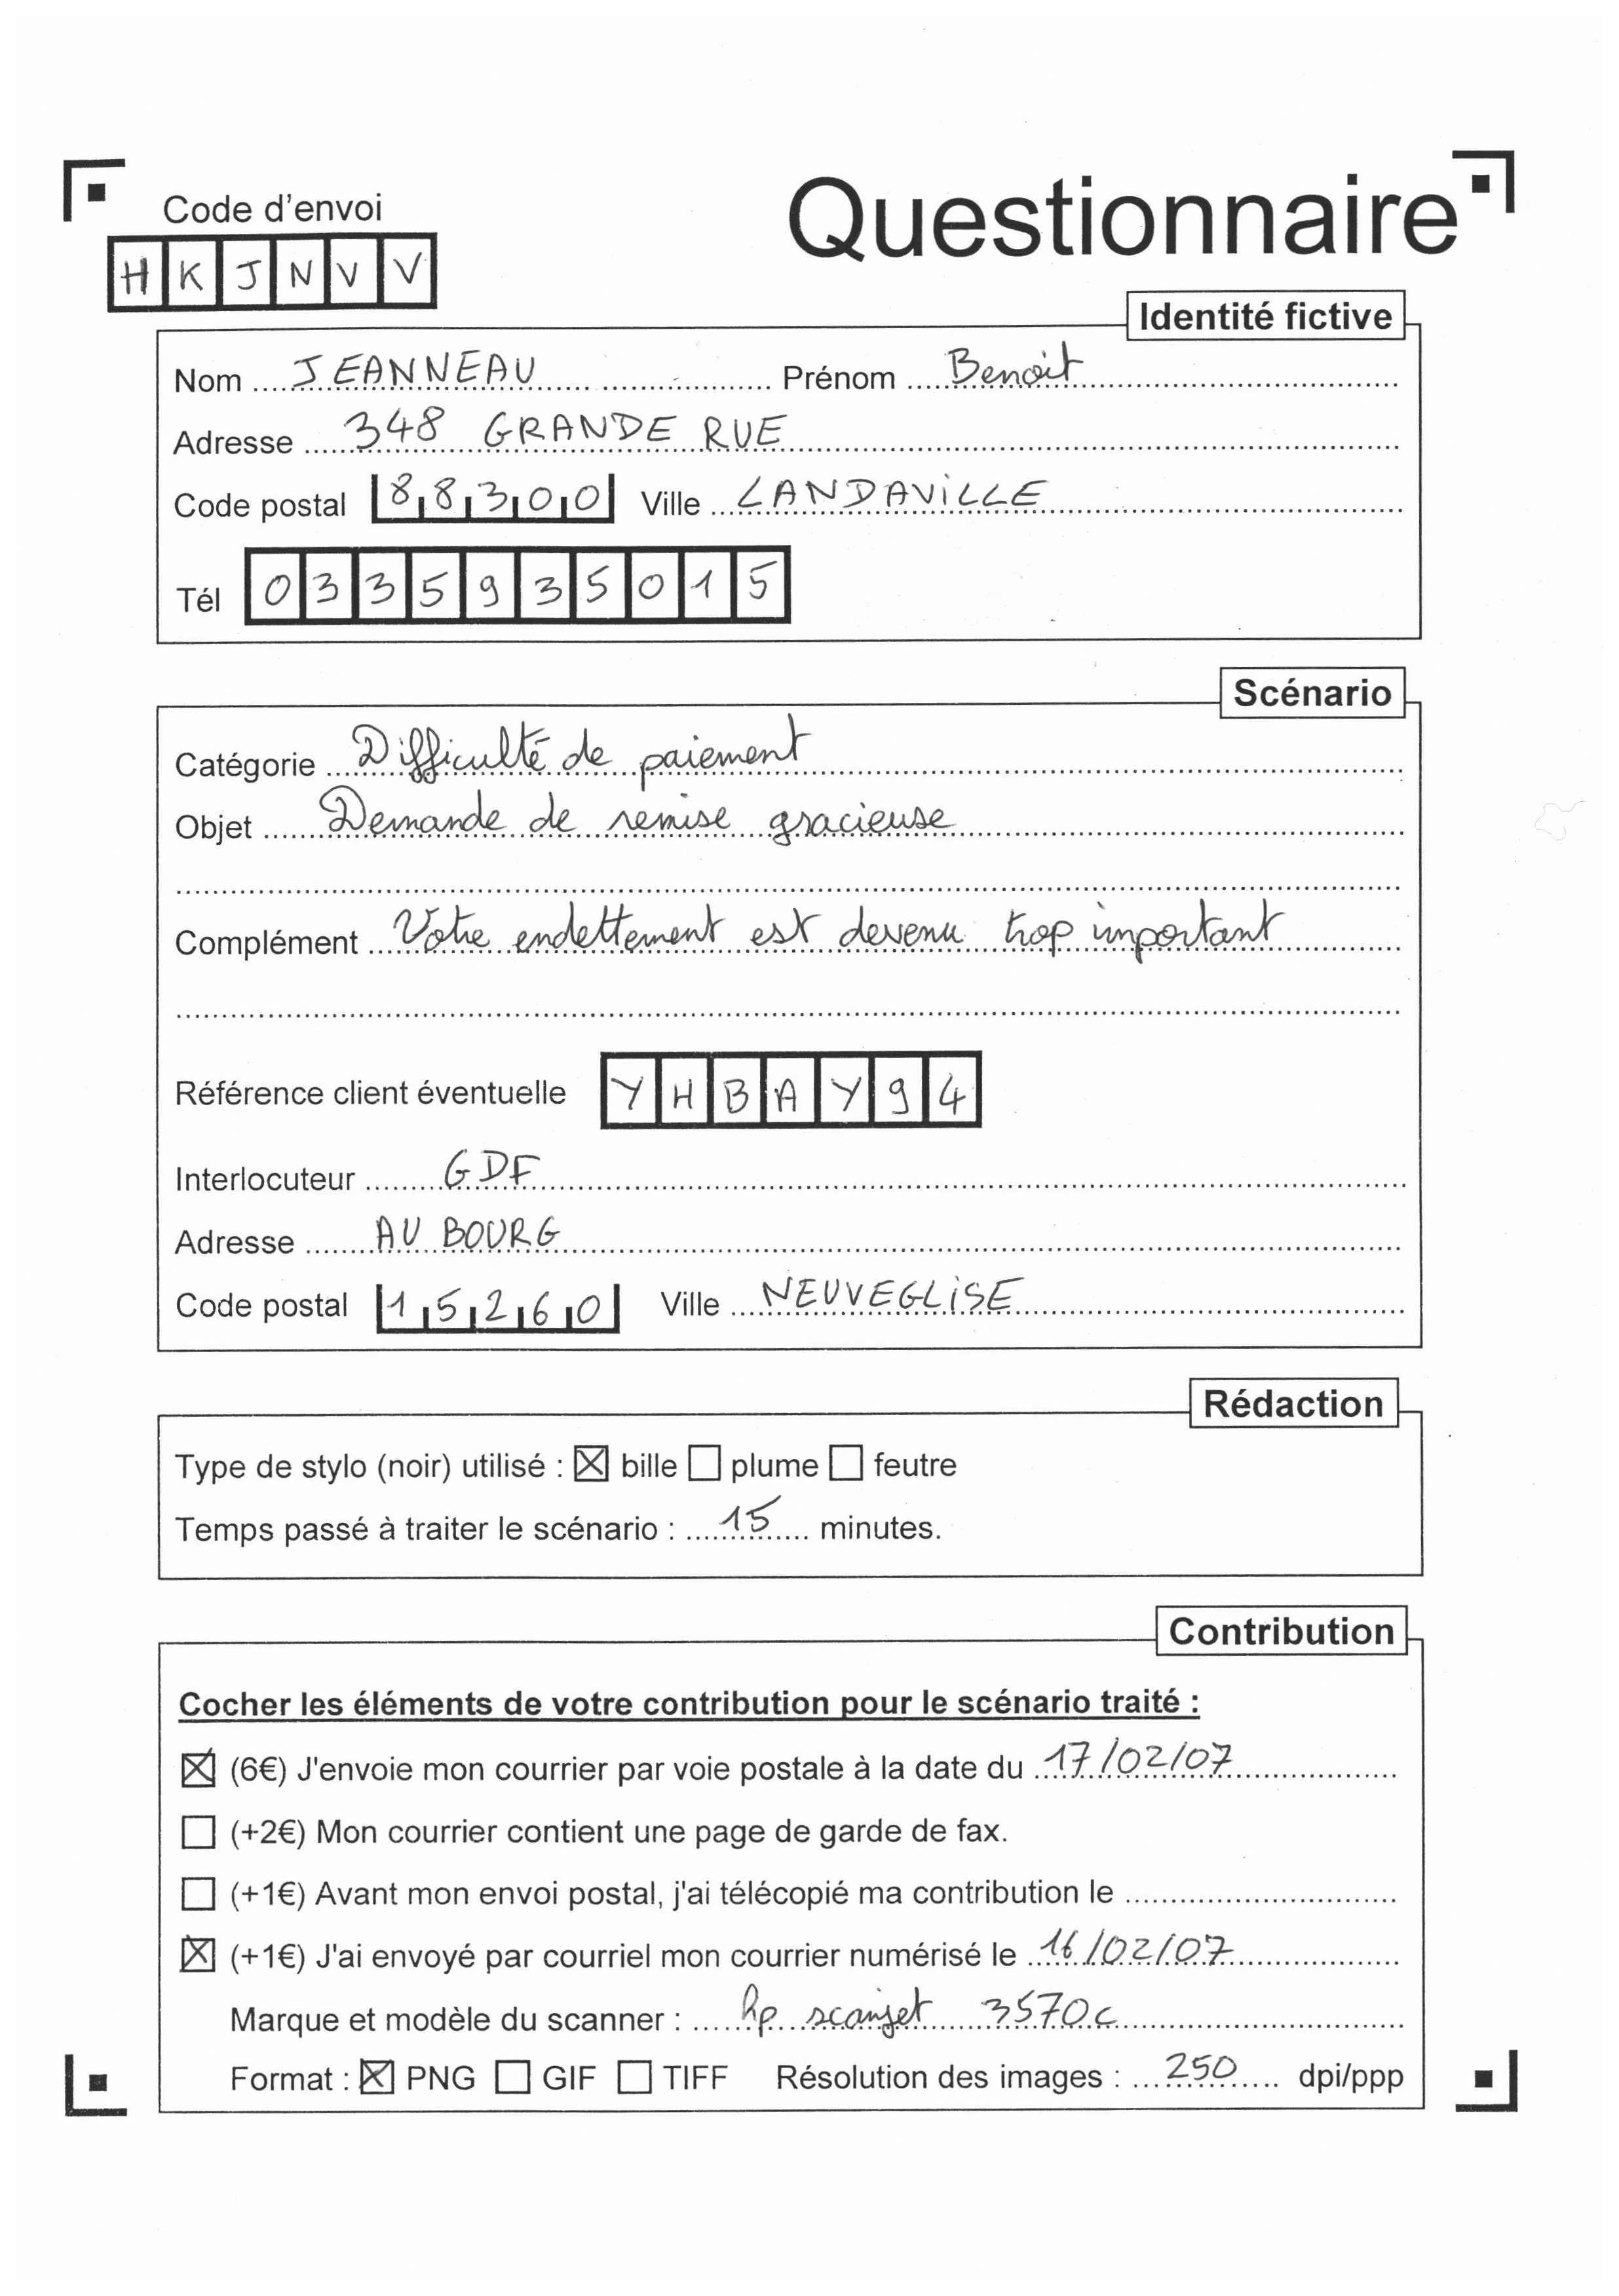 Questionnaire
Code d'envoi
HKJNVV
Identité fictive
Nom JEANNEAU Prénom Benoit
Adresse 348 GRANDE RUE
Code postal 88300 Ville LANDAVILLE
Tél 0335935015
Scénario
Catégorie Difficulté de paiement
Objet Demande de remise gracieuse
Complément Votre endettement est devenu trop important
Référence client éventuelle YHBAY94
Interlocuteur GDF
Adresse AU BOURG
Code postal 15260 Ville NEUVEGLISE
Rédaction
Type de stylo (noir) utilisé : ☒ bille ☐ plume ☐ feutre
Temps passé à traiter le scénario : 15 minutes.
Contribution
Cocher les éléments de votre contribution pour le scénario traité :
☒ (6€) J'envoie mon courrier par voie postale à la date du 17/02/07
☐ (+2€) Mon courrier contient une page de garde de fax.
☐ (+1€) Avant mon envoi postal, j'ai télécopié ma contribution le
☒ (+1€) J'ai envoyé par courriel mon courrier numérisé le 16/02/07
Marque et modèle du scanner : hp scanjet 3570c
Format : ☒ PNG ☐ GIF ☐ TIFF Résolution des images : 250 dpi/ppp